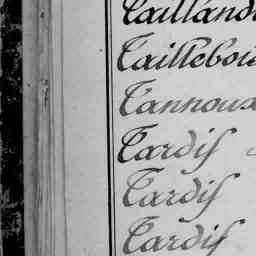 Tailland
Taillebois
Tannoux
Tardif
Tardif
Tardif